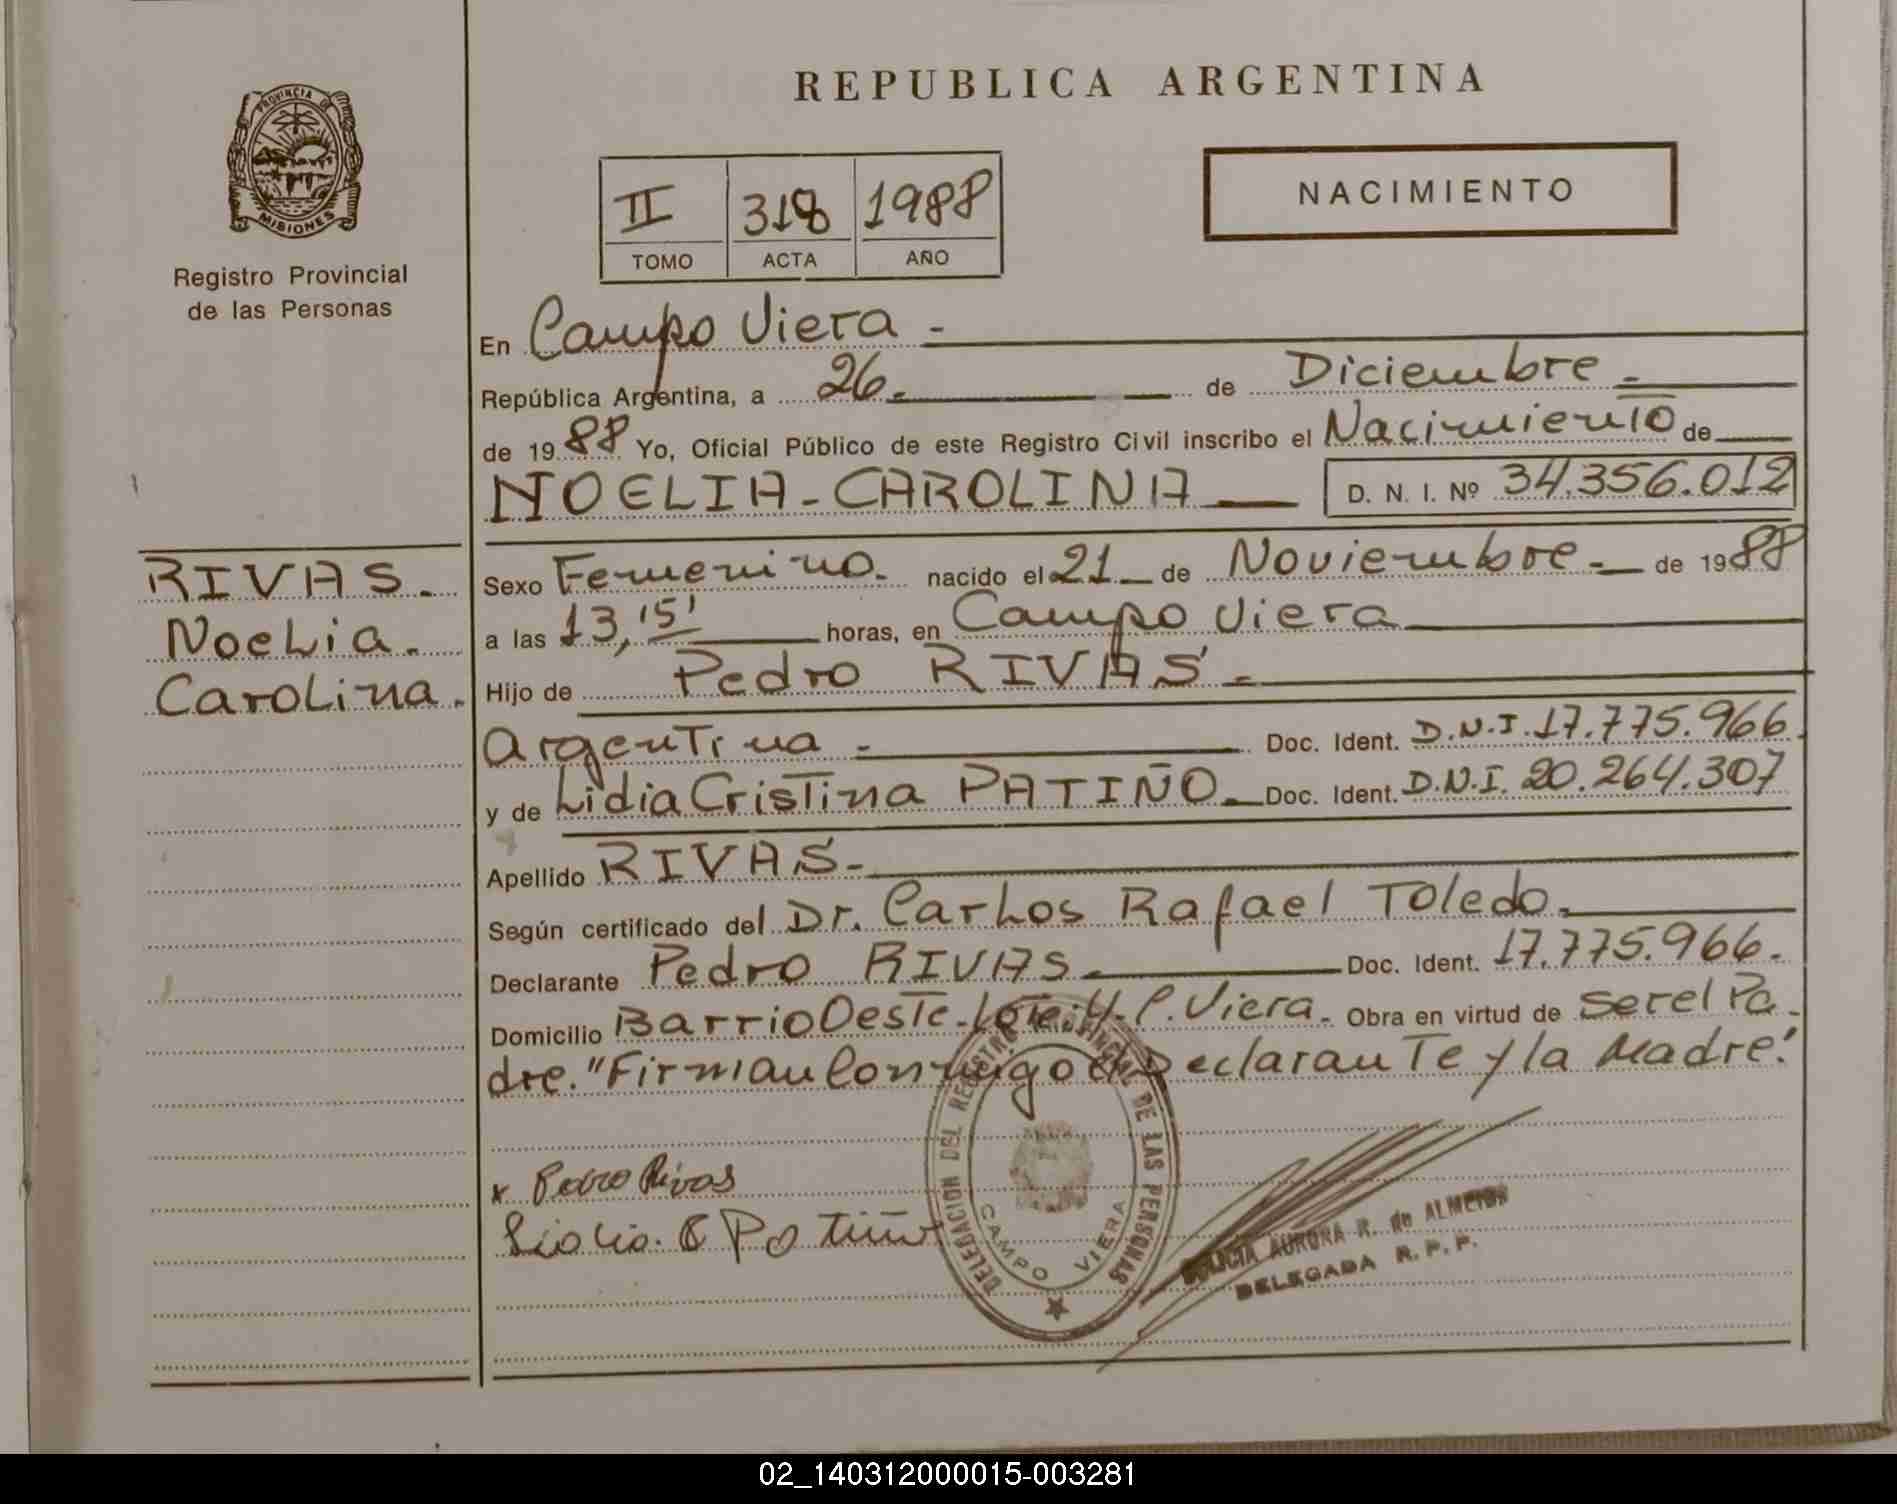 REPUBLICA ARGENTINA
PROVINCIA DE
MISIONES
Registro Provincial
de las Personas
II 318 1988
TOMO ACTA AÑO
NACIMIENTO
En Campo Viera -
República Argentina, a 26. de Diciembre -
de 1988 Yo, Oficial Público de este Registro Civil inscribo el Nacimiento de
NOELIA-CAROLINA D. N. I. Nº 34.356.012
RIVAS.
Noelia.
Carolina.
Sexo Femenino. nacido el 21 de Noviembre - de 1988
a las 13,15' horas, en Campo Viera
Hijo de Pedro RIVAS. -
Argentina - Doc. Ident. D.N.I. 17.775.966
y de Lidia Cristina PATIÑO. Doc. Ident. D.N.I. 20.264.307
Apellido RIVAS-
Según certificado del Dr. Carlos Rafael Toledo.
Declarante Pedro RIVAS Doc. Ident. 17.775.966.
Domicilio Barrio Oeste-Lote.4-C.Viera. Obra en virtud de ser el Pa-
dre. "Firman Conmigo el Declarante y la Madre."
x Pedro Rivas
Lidia. C Patiño
DELEGACION DEL REGISTRO PROVINCIAL DE LAS PERSONAS
CAMPO VIERA
AURORA R. de ALMEIDA
DELEGADA R. P. P.
02_140312000015-003281